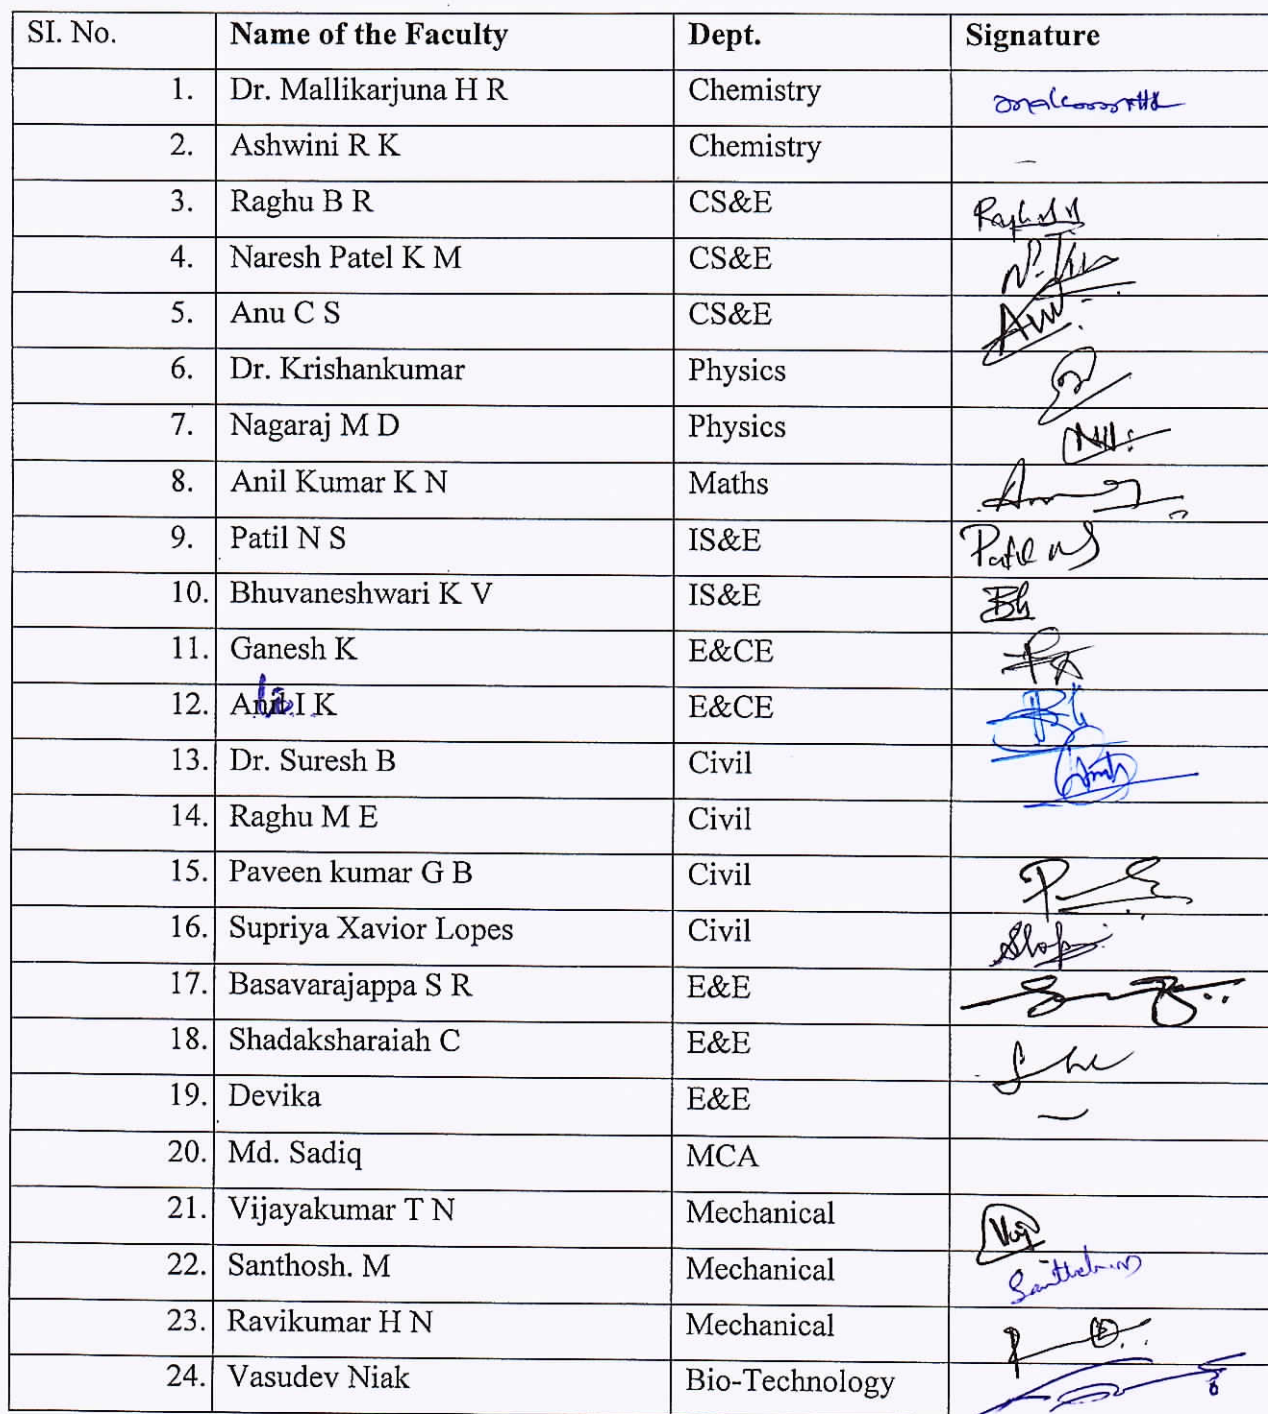 SI. No. Name of the Faculty Dept. Signature
1. Dr. Mallikarjuna H R Chemistry
2. Ashwini R K Chemistry –
3. Raghu B R CS&E
4. Naresh Patel K M CS&E
5. Anu C S CS&E Anu
6. Dr. Krishankumar Physics
7. Nagaraj M D Physics
8. Anil Kumar K N Maths
9. Patil N S IS&E Patil NS
10. Bhuvaneshwari K V IS&E
11. Ganesh K E&CE
12. I K E&CE
13. Dr. Suresh B Civil
14. Raghu M E Civil
15. Paveen kumar G B Civil
16. Supriya Xavior Lopes Civil
17. Basavarajappa S R E&E
18. Shadaksharaiah C E&E
19. Devika E&E –
20. Md. Sadiq MCA
21. Vijayakumar T N Mechanical
22. Santhosh. M Mechanical
23. Ravikumar H N Mechanical
24. Vasudev Niak Bio-Technology